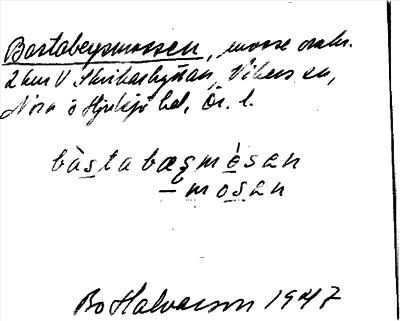 Bastabergsmossen, mosse omkr.
2 km V Skrikarhyttan, Vikers sn,
Nora o Hjulsjö bd, Ör. l.
bàstabærgmósan
– mosan
Bo Halvarson 1947